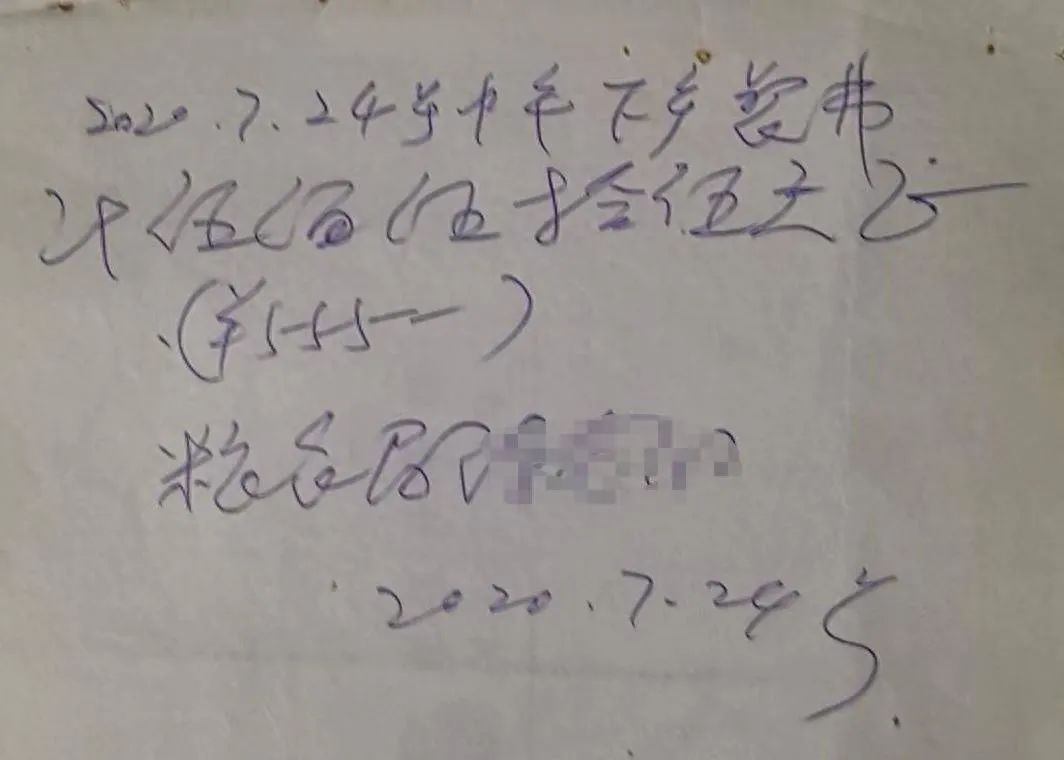 2020.7.24号中午下乡餐费
计伍佰伍拾伍元正
(¥555一)
粮食局
2020.7.24号